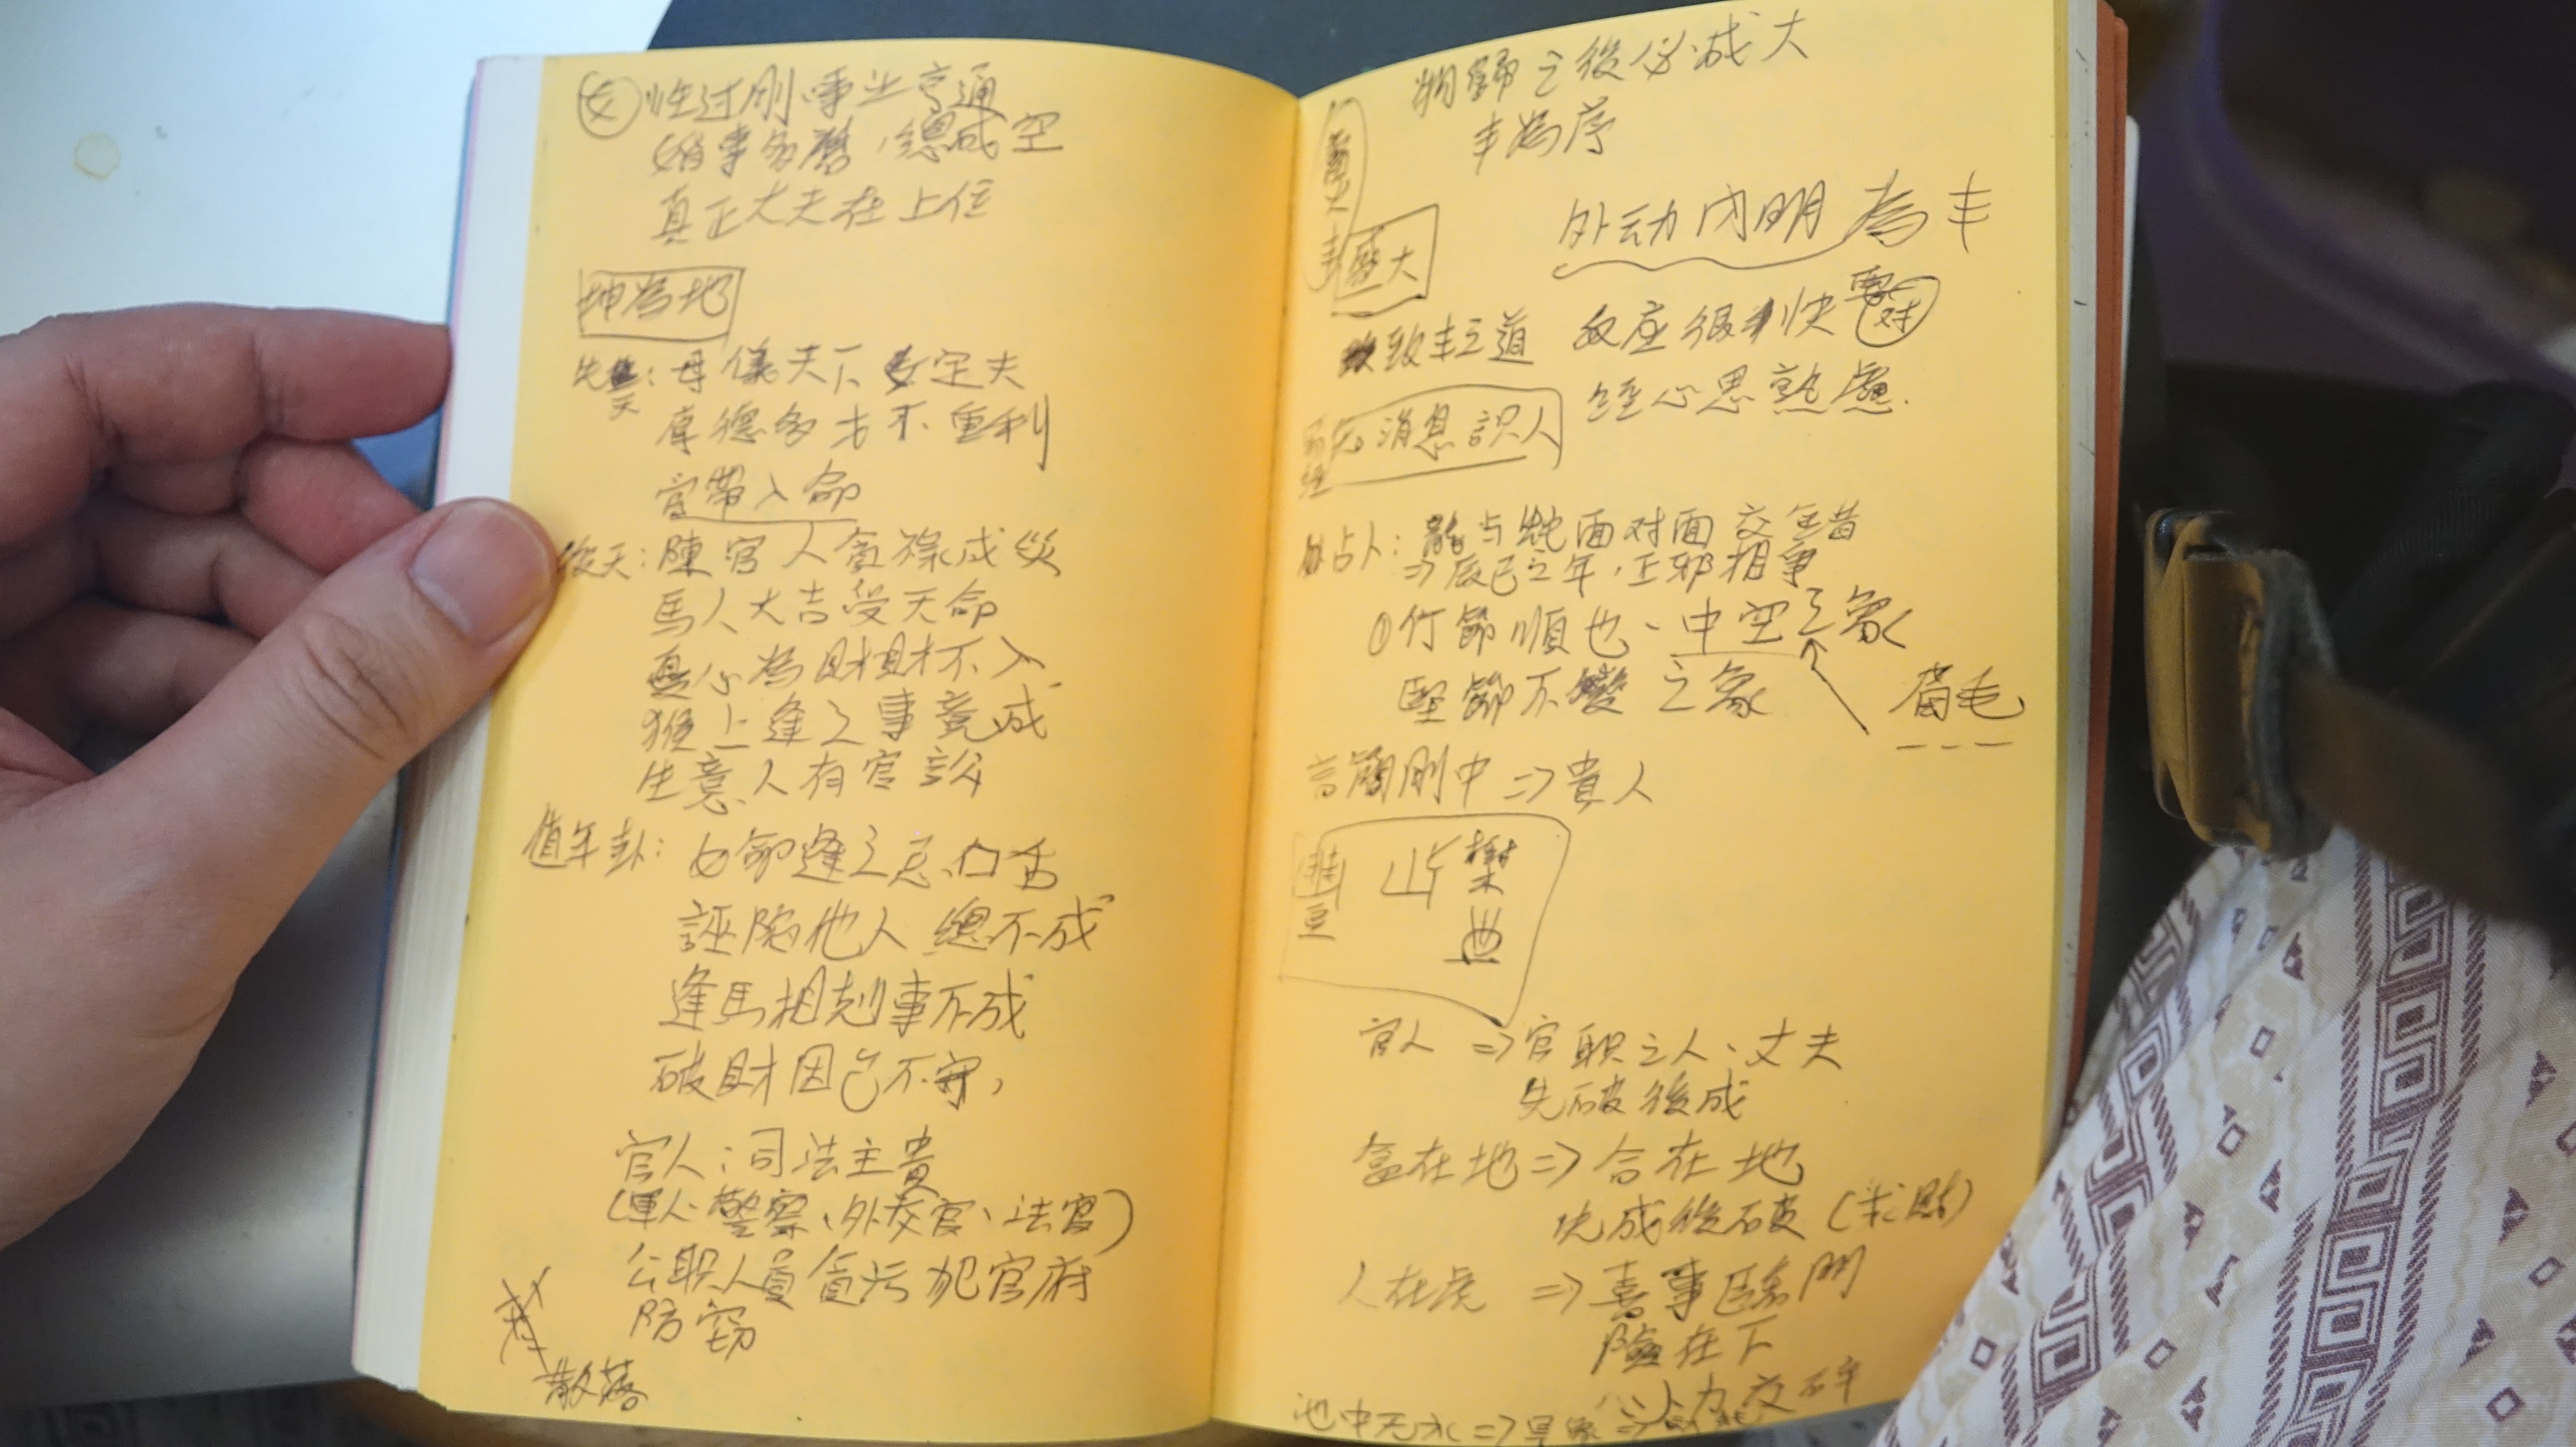 女 性过刚事业亨通
婚事多磨，總成空
真正大夫在上位
坤為地
先天：母儀天下女定夫
厚德多才不重利
官帶入命
後天：陳官人貪祿成災
馬人大吉受天命
真心為財財不入
猴上逢之事竟成
生意人有官訟
值年卦：女命逢之忌口舌
誣陷他人總不成
逢馬相剋事不成
破財因己不守，
官人：司法主貴
（軍人、警察、外交官、法官）
公职人員貪污犯官府
防窃
散落
歸之後必成大
丰為序
外动内明為丰
盛大
致丰之道
反应很快 需对
經心思熟慮.
消息識人
占人：龍与蛇面对面交全昔
=>辰巳之年，正邪相事
①竹節順也、中空之象
堅節不變之象
眉毛
言 剛中 => 貴人
豆
山
官人 => 官职之人、丈夫
先破後成
在地 => 合在地
先成後破（求財）
人在虎 => 喜事臨門
險在下
池中无水 => 旱象 =>